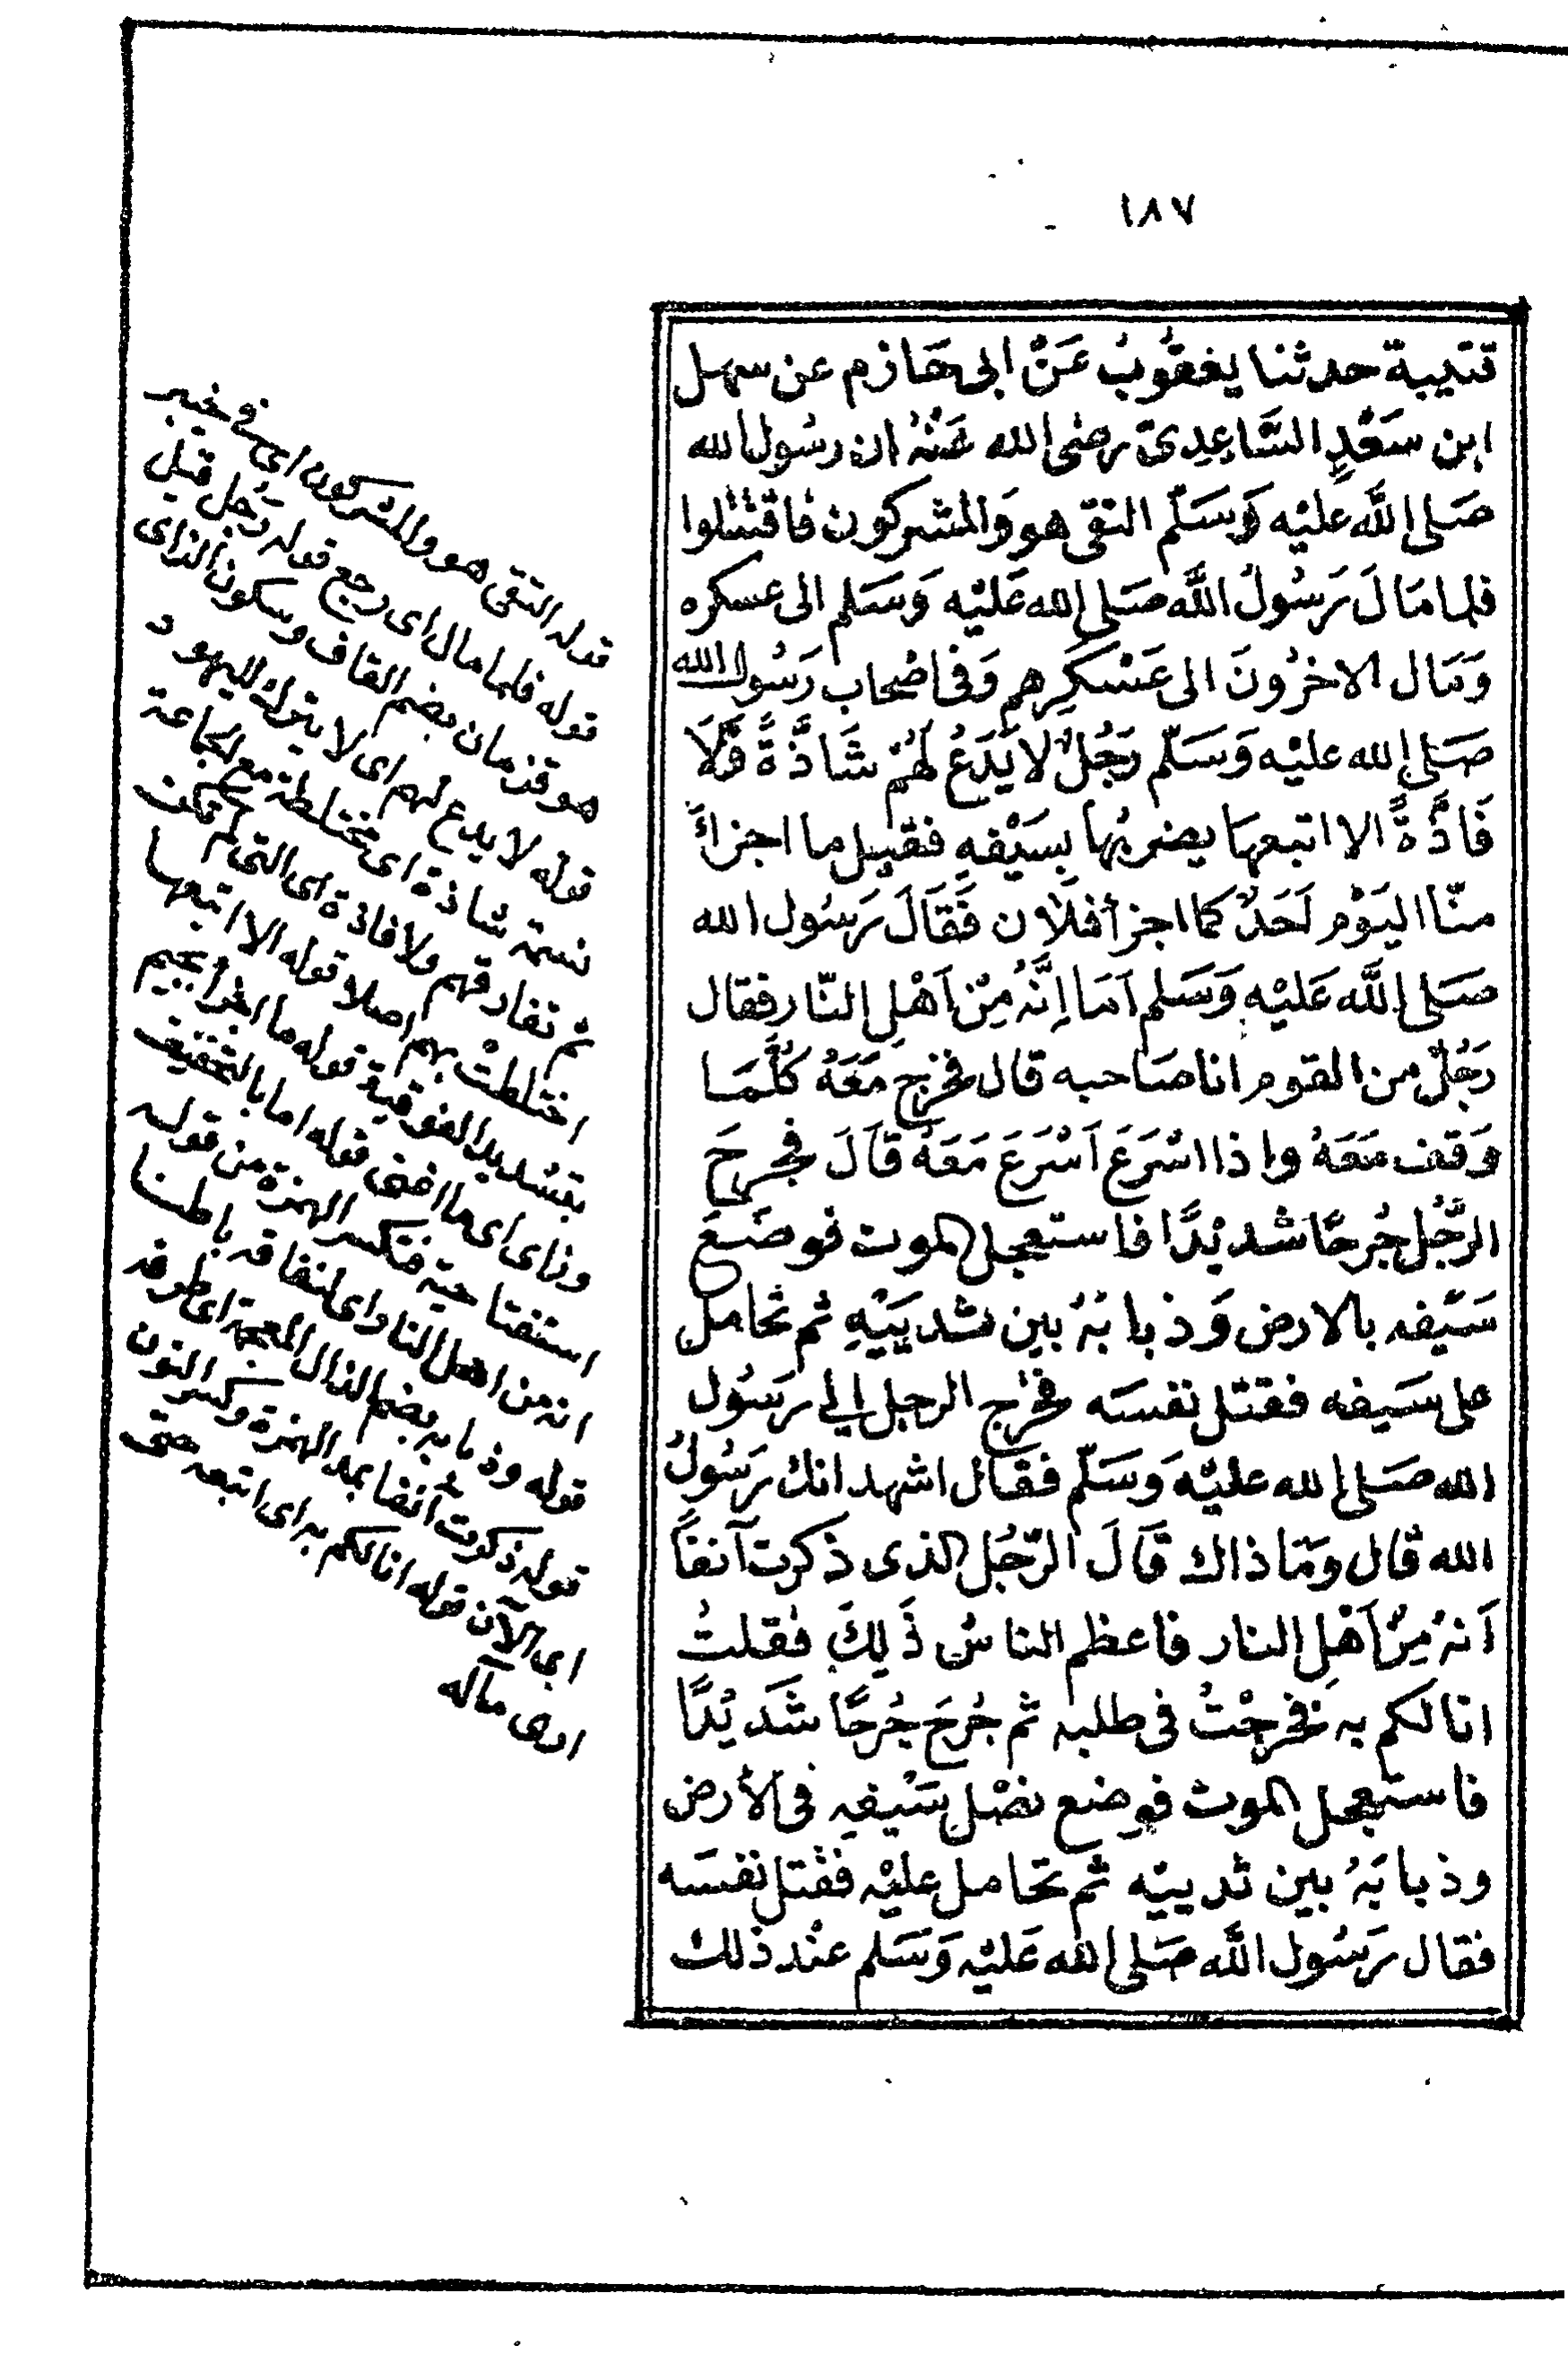 ١٨٧
قتيبة حدثنا يعقُوبُ عَنْ ابى حَازم عن سهل
ابن سَعْدٍ السَّاعِدِىّ رضى الله عَنْهُ ان رسُول الله
صَلى اللَّه عليْه وَسَلّم التقى هو وَالمشركون فاقتتلوا
فلما مَالَ رَسُولُ اللَّه صَلى الله عَليْه وَسَلم الى عسكره
وَمَال الاخرُونَ الى عَسْكَرِهم وَفى اصْحاب رَسُول الله
صَلى الله عليْه وَسَلّم رَجُلٌ لا يَدَعُ لَهُمْ شَاذَّةً وَّلَا
فَاذَّةً الا اتبعهَا يضربُها بِسَيْفِهِ فقيل ما اجزاَ
منّا اليَوْم اَحَدٌ كما اجزأ فلَان فَقَالَ رَسُول الله
صَلى اللَّه عَليْهِ وَسَلم اَمَا اِنَّهُ مِنْ اَهْلِ النّار فقال
رَجُلٌ من القوم انا صَاحبه قال فخرج مَعَهُ كلَّمَا
وَقف مَعَهُ واذا اسْرَعَ اَسْرَعَ مَعَهُ قاَلَ فجُرحَ
الرَّجُل جُرحًا شديْدًا فاستعجل الموت فوضَعَ
سَيْفه بالارض وَذبابَهُ بين ثديَيْهِ ثم تحامل
على سَيفه فقتل نفسَه فخرج الرجل الى رسُول
الله صَلى الله عليْه وَسَلّم فقال اشهد انك رَسُولُ
الله قال وَمَا ذاك قَالَ الرّجُل الذى ذكرت آنفًا
اَنهُ مِنْ اَهْلِ النار فاعظم الناسُ ذَلِكَ فقلتُ
انا لكم به فخرجْتُ فى طلبه ثم جُرحَ جُرحًا شَديْدًا
فاستعجل الموت فوضع نصْل سَيْفِه فى الأرض
وذبابَهُ بين ثدييْه ثم تحامل عليْه فقتل نفسَه
فقال رَسُول اللَّه صَلى الله عَليْه وَسَلم عنْد ذلك
قوله التقى هو والمشركون اى فى خيبر
قوله فلما مال اى رجع قوله رَجُل قيل
هو قزمان بضم القاف وسكون الزاى
قوله لا يدع لهم اى لا يترك لليهود
نسمة شاذة اى مختلطة مع الجماعة
ثم تفارقهم ولا فاذة اى التى لم تكن
اختلطتْ بهم اصلا قوله الا اتبعها
بتشديد الفوقية قوله ما اجزأ بجيم
وزاى اى ما اغنى قوله اما بالتخفيف
استفتاحية فتكسر الهمزة من قوله
انه من اهل النار اى لنفاقه باطنا
قوله وذبابه بضم الذال المعجمة اى طرفه
قوله ذكرت آنفا بمد الهمزة وكسر النون
اى الآن قوله انا لكم به اى اتبعه حتى
ارى مآله